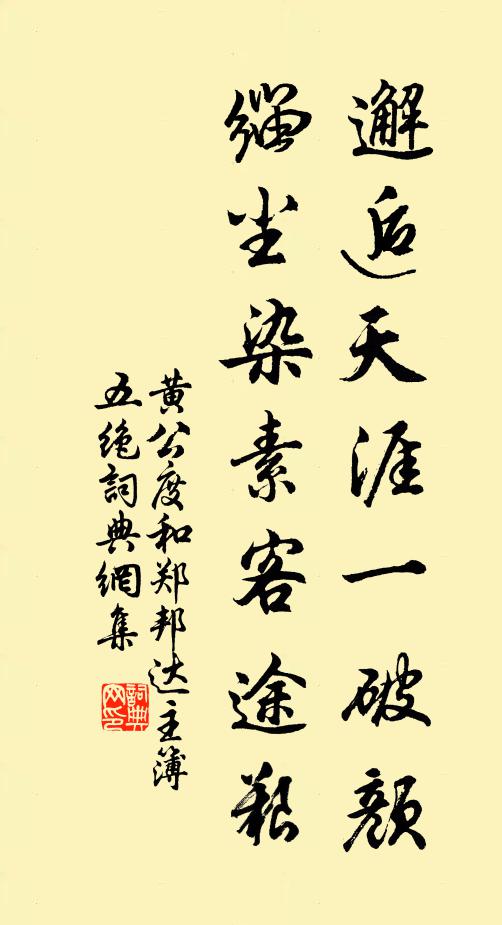 邂逅天涯一破颜
缁尘染素客途艰
黄公度和郑邦达主簿
五绝詞典網集
詞典网印